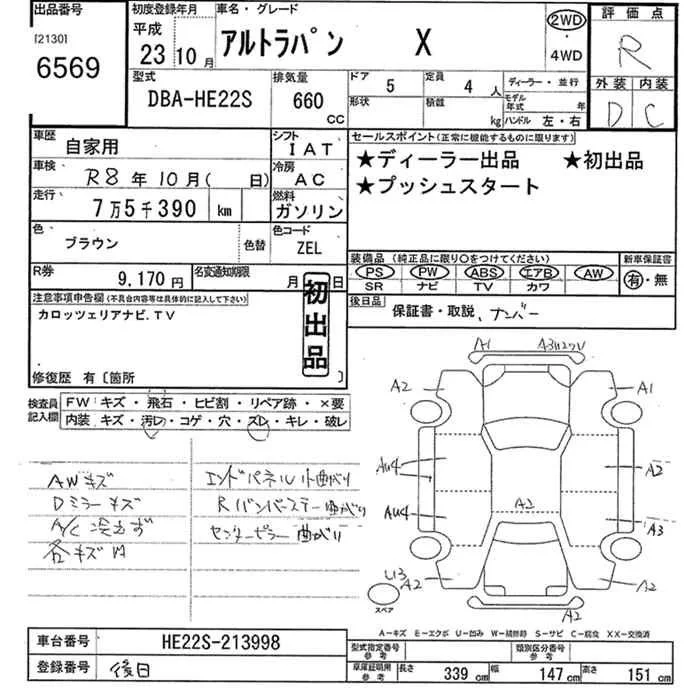 出品番号 初度登録年月 車名・グレード 評価点
[2130] 平成 2WD
6569 23 10月 アルトラパン X 4WD R
型式 排気量 ドア 5 定員 4人 ディーラー・並行 外装 内装
DBA-HE22S 660 CC 形状 積載 kg モデル年式 年 D C
ハンドル 左・右
車歴 自家用 シフト IAT セールスポイント(正常に機能するものに限ります)
車検 R8年10月( 日) 冷房 AC ★ディーラー出品 ★初出品
走行 7万5千390 km 燃料 ガソリン ★プッシュスタート
色 ブラウン 色替 色コード ZEL
装備品(純正品に限り○をつけてください) 新車保証書
R券 9,170円 名変通知期限 月 PS PW ABS エアB AW 有・無
SR ナビ TV カワ
注意事項申告欄(不具合内容等は具体的に記入して下さい) 初出品 後日品 保証書・取説、ナンバー
カロッツェリアナビ.TV
修復歴 有〔箇所 〕
検査員記入欄 FW:キズ・飛石・ヒビ割・リペア跡・×要
内装:キズ・汚レ・コゲ・穴・ズレ・キレ・破レ
A1
A2 A1
AU4 A2
AU4 A2 A3
A2 A2
A2
スペア
AWキズ エンドパネル小曲がり
Dミラーキズ Rバンパーステー曲がり
A/C冷えず センターピラー曲がり
各キズ凹
A-キズ E-エクボ U-凹み W-補修跡 S-サビ C-腐食 XX-交換済
車台番号 HE22S-213998 型式指定番号 参考 類別区分番号 参考
登録番号 後日 車庫証明用 参考 長さ 339 cm 幅 147 cm 高さ 151 cm